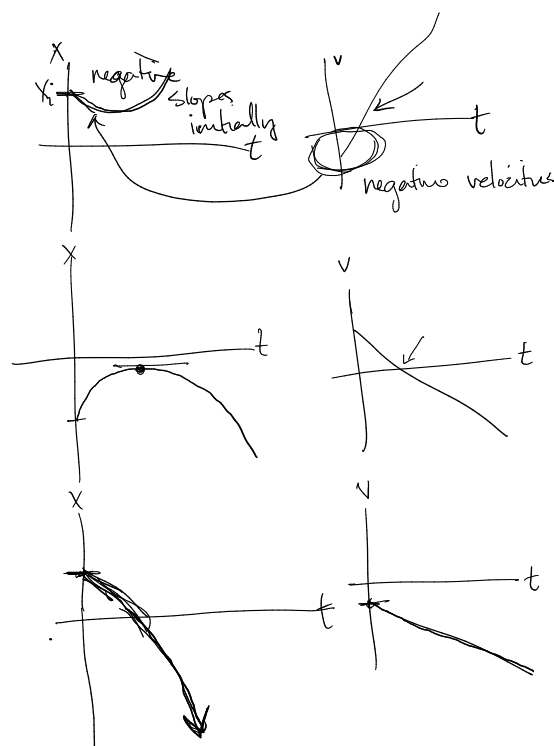 x
v
xi
negative
slopes
initially
t
t
negative velocities
x
v
t
t
x
v
t
t